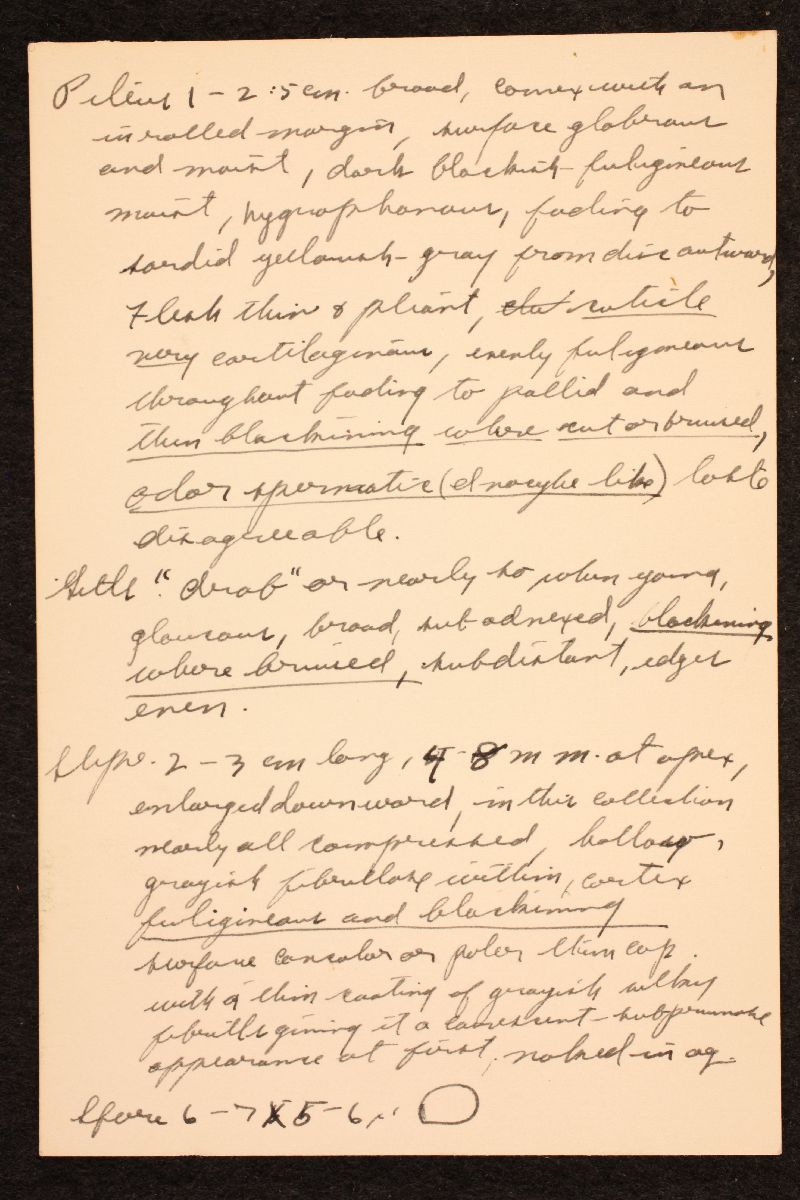 Pileus 1 – 2.5 cm. broad, convex with an
inrolled margin, surface glabrous
and moist, dark blackish-fuligineous
moist, hygrophanous, fading to
sordid yellowish-gray from disc outward,
Flesh thin & pliant, cuticle
very cartilaginous, evenly fuligineous
throughout fading to pallid and
then blackining where cut or bruised,
odor spermatic (Inocybe like) taste
disagreeable.
Gills "drab" or nearly so when young,
glaucous, broad, subadnexed, blackening
where bruised, subdistant, edges
even.
Stipe. 2 – 3 cm long, 4 - 8 m m. at apex,
enlarged downward, in this collection
nearly all compressed, hollow,
grayish fibrillose within, cortex
fuligineous and blackining
surface concolor or paler than cap.
with a thin coating of grayish silky
fibrills giving it a canescent-subpruinose
appearance at first, naked in age.
Spore 6 – 7 X 5 – 6 µ.